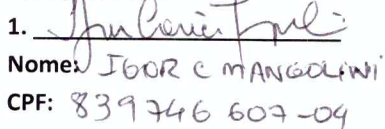 1.
Nome: IGOR C MANGOLINI
CPF: 839746607-04